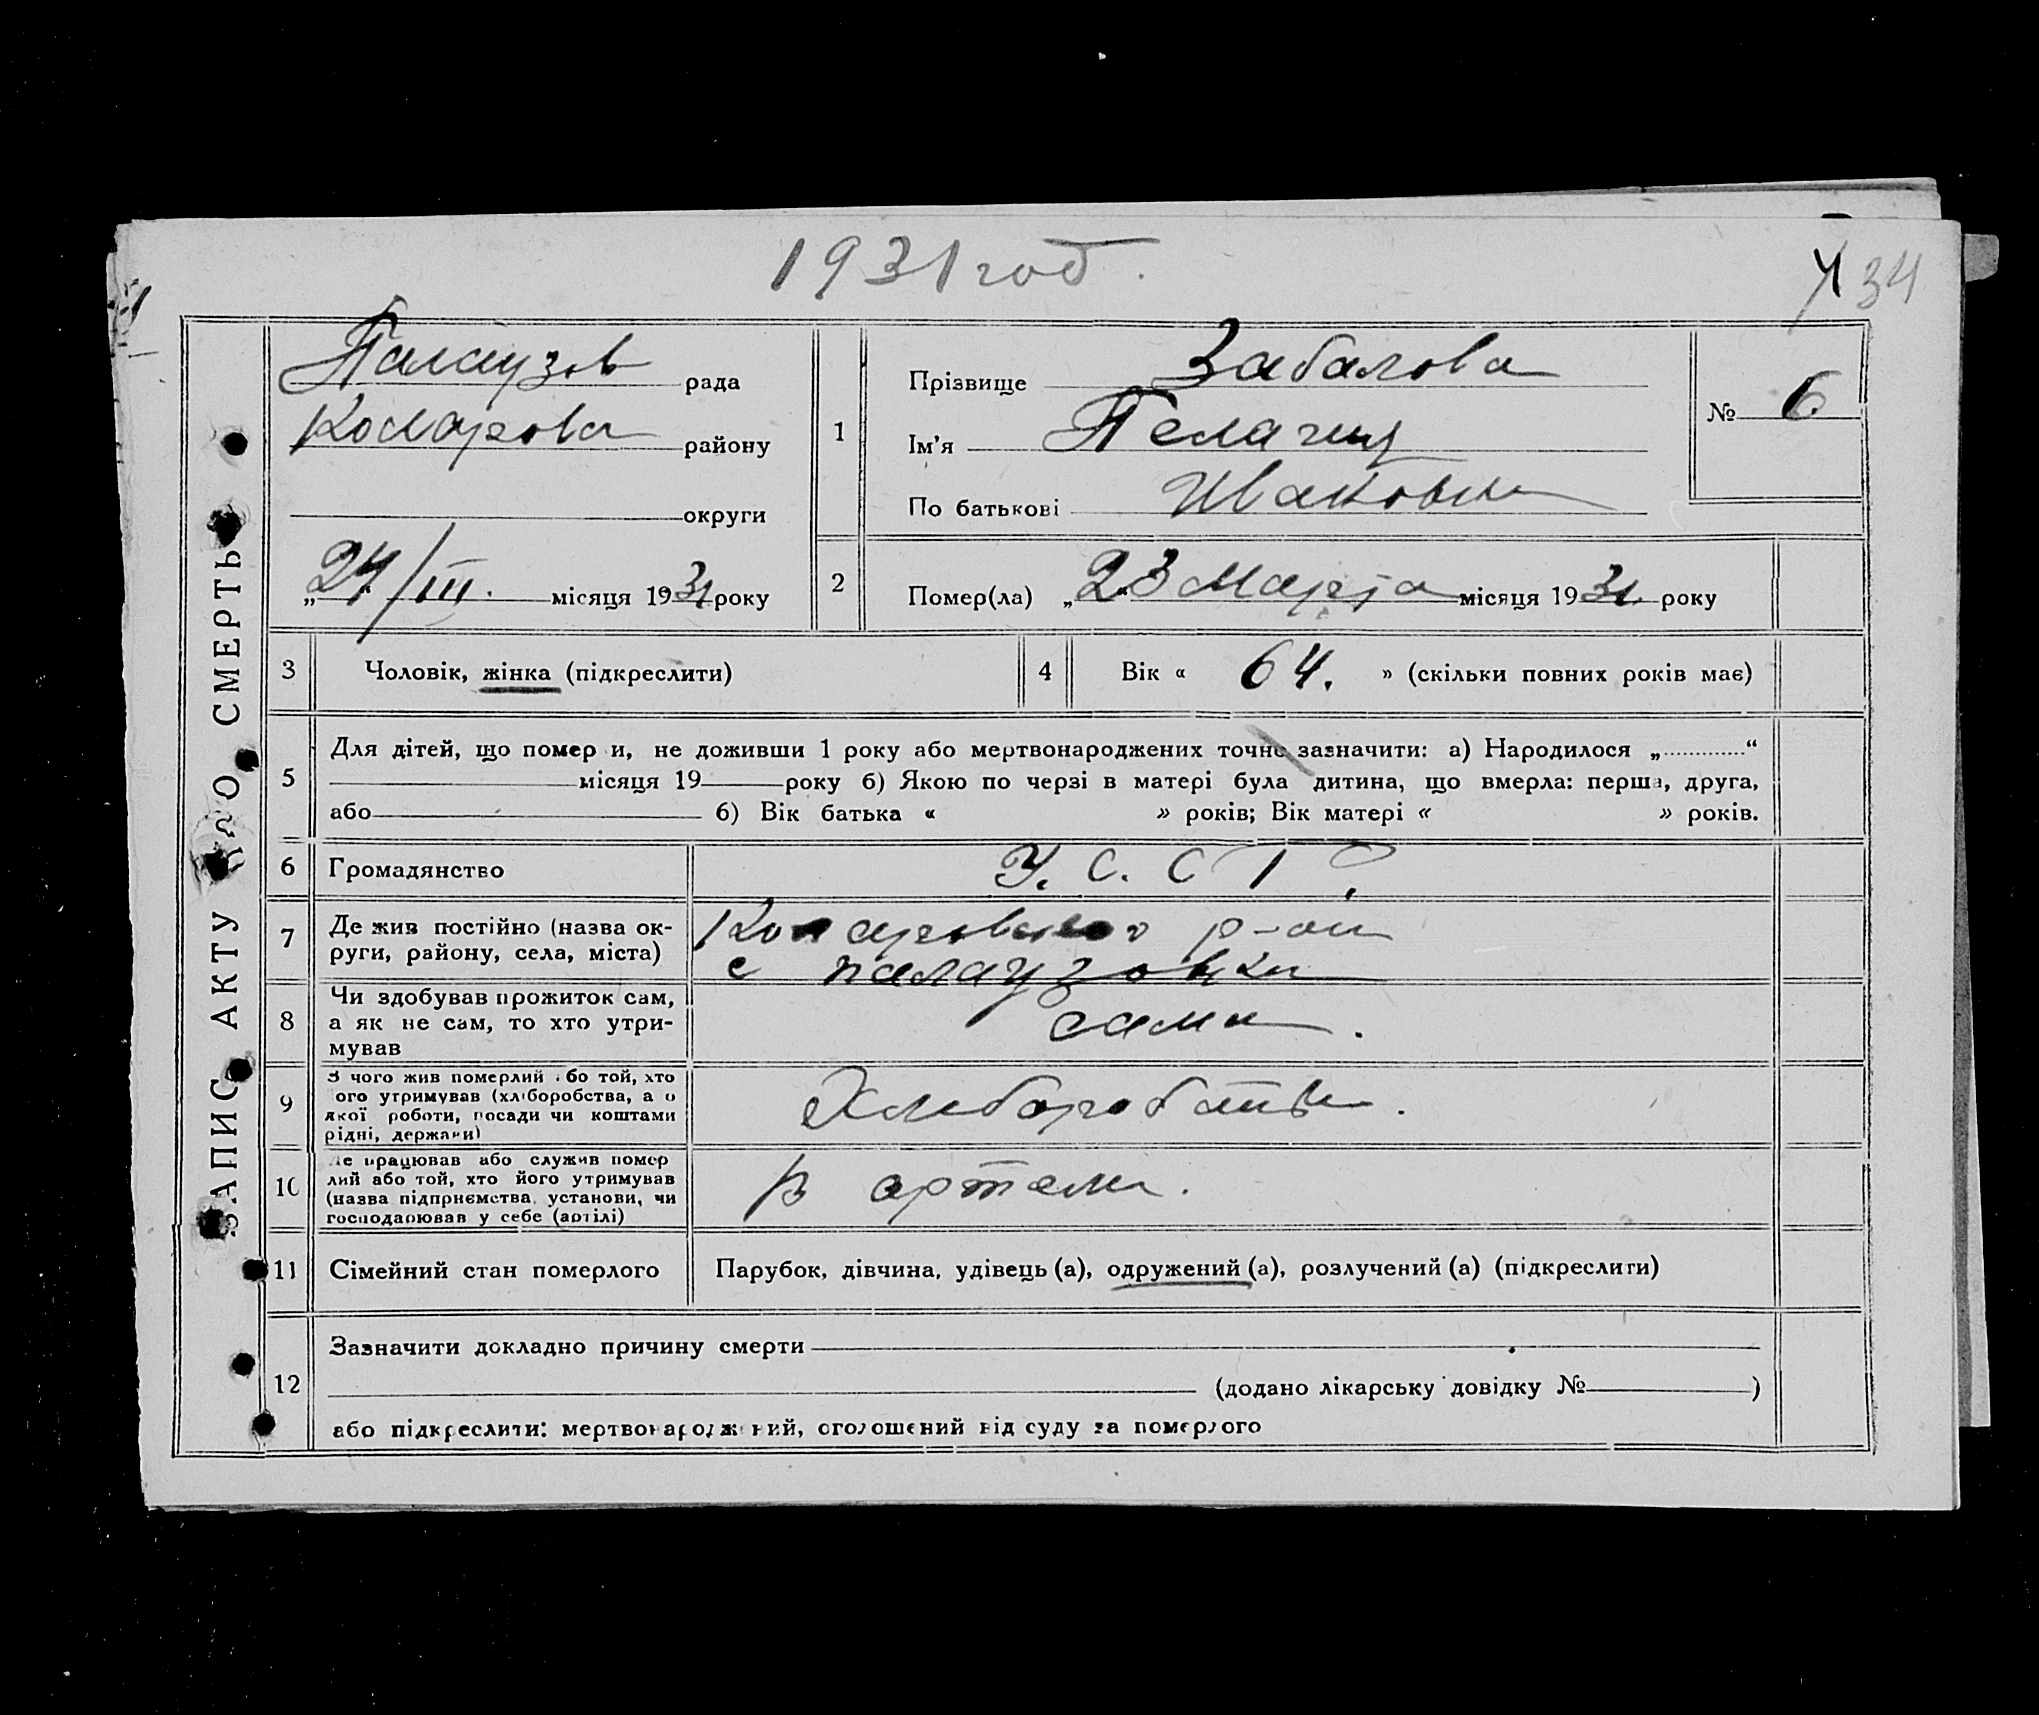 1931 год.
34
ЗАПИС АКТУ ПРО СМЕРТЬ
Палаузов рада
Коларова району
округи
„24/III. місяця 1931 року
1
Прізвище Забалова
Ім'я Пелагия
По батькові Ивановна
№ 6
2
Помер(ла) „23 Марта місяця 1931 року
3 Чоловік, жінка (підкреслити)
4 Вік « 64. » (скільки повних років має)
5
Для дітей, що померли, не доживши 1 року або мертвонароджених точно зазначити: а) Народилося „.............“
місяця 19 року б) Якою по черзі в матері була дитина, що вмерла: перша, друга,
або б) Вік батька « » років; Вік матері « » років.
6 Громадянство У. С. С Р.
7
Де жив постійно (назва ок-
руги, району, села, міста)
Коларовского р-на
с Палаузовки
8
Чи здобував прожиток сам,
а як не сам, то хто утри-
мував
сама.
9
З чого жив померлий або той, хто
його утримував (хліборобства, а о
якої роботи, посади чи коштами
рідні, держави)
Хлеборобства.
10
Де працював або служив помер
лий або той, хто його утримував
(назва підприємства, установи, чи
господарював у себе (артілі)
В артели.
11 Сімейний стан померлого
Парубок, дівчина, удівець (а), одружений (а), розлучений (а) (підкреслити)
12
Зазначити докладно причину смерти
(додано лікарську довідку № )
або підкреслити: мертвонароджений, оголошений від суду за померлого